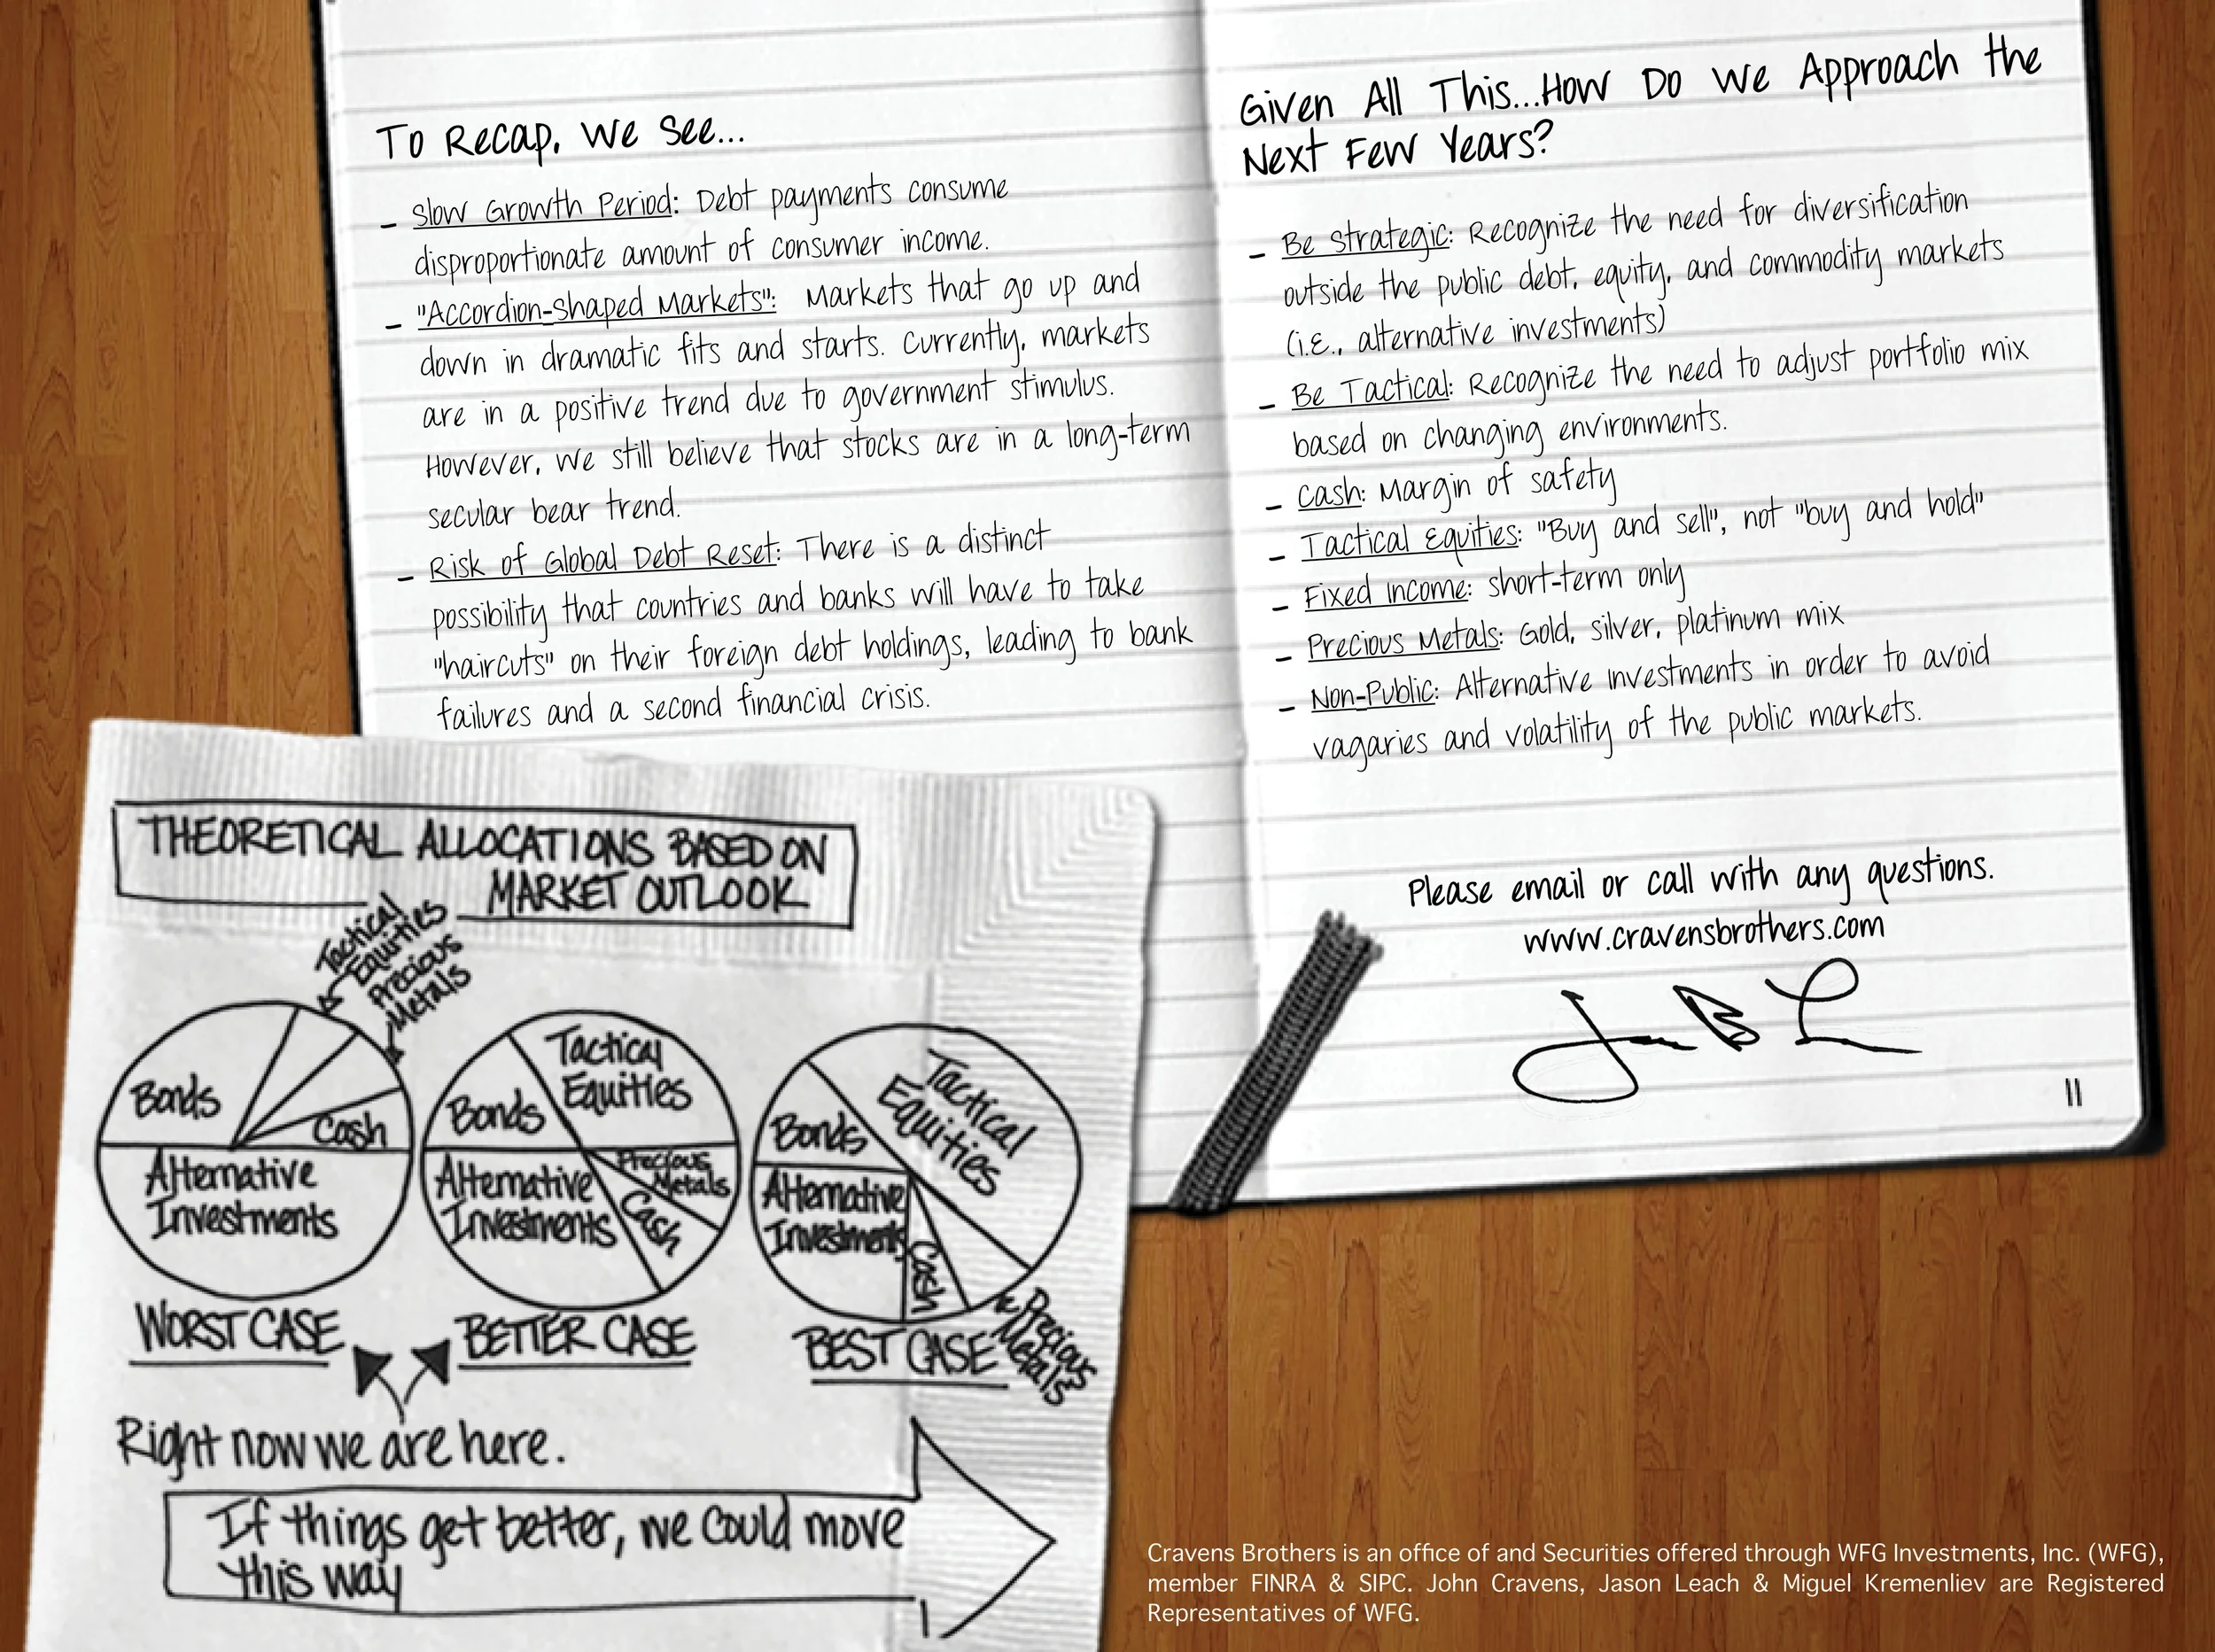 To Recap, We See...
- Slow Growth Period: Debt payments consume
disproportionate amount of consumer income.
- "Accordion-Shaped Markets": Markets that go up and
down in dramatic fits and starts. Currently, markets
are in a positive trend due to government stimulus.
However, we still believe that stocks are in a long-term
secular bear trend.
- Risk of Global Debt Reset: There is a distinct
possibility that countries and banks will have to take
"haircuts" on their foreign debt holdings, leading to bank
failures and a second financial crisis.
Given All This...How Do We Approach the
Next Few Years?
- Be Strategic: Recognize the need for diversification
outside the public debt, equity, and commodity markets
(i.e., alternative investments)
- Be Tactical: Recognize the need to adjust portfolio mix
based on changing environments.
- Cash: Margin of safety
- Tactical Equities: "Buy and sell", not "buy and hold"
- Fixed Income: short-term only
- Precious Metals: Gold, silver, platinum mix
- Non-Public: Alternative investments in order to avoid
vagaries and volatility of the public markets.
Please email or call with any questions.
www.cravensbrothers.com
11
THEORETICAL ALLOCATIONS BASED ON
MARKET OUTLOOK
Tactical
Equities
Precious
Metals
Bonds
Cash
Alternative
Investments
WORST CASE
Tactical
Equities
Bonds
Precious
Metals
Cash
Alternative
Investments
BETTER CASE
Tactical
Equities
Bonds
Alternative
Investments
Cash
Precious
Metals
BEST CASE
Right now we are here.
If things get better, we could move
this way
Cravens Brothers is an office of and Securities offered through WFG Investments, Inc. (WFG),
member FINRA & SIPC. John Cravens, Jason Leach & Miguel Kremenliev are Registered
Representatives of WFG.